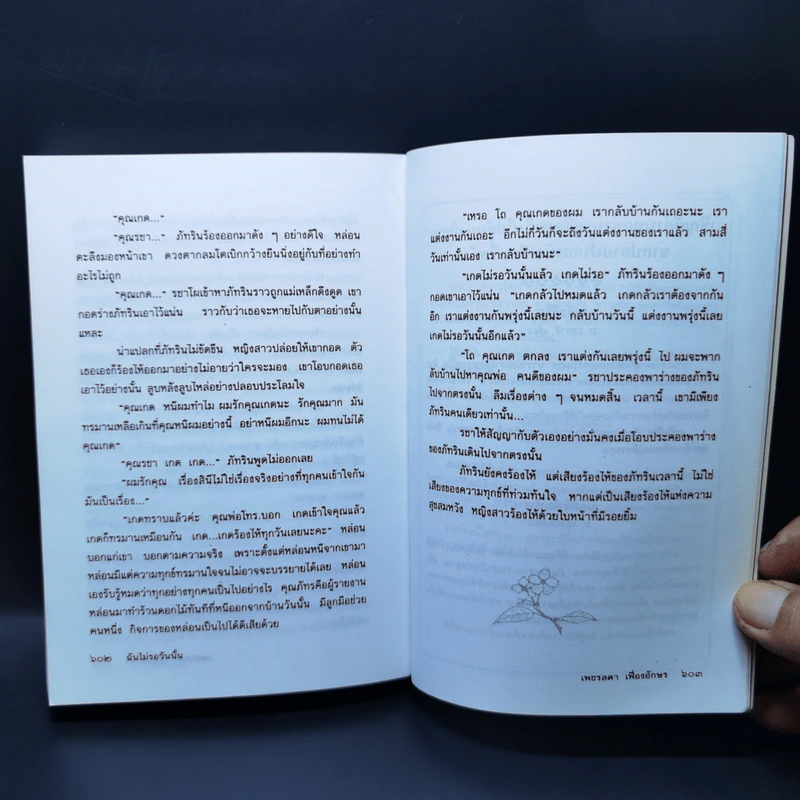 "คุณเกด..."
"คุณรชา..." ภัทรินร้องออกมาดัง ๆ อย่างดีใจ หล่อน
ตะลึงมองหน้าเขา ดวงตากลมโตเบิกกว้างยืนนิ่งอยู่กับที่อย่างทำ
อะไรไม่ถูก
"คุณเกด..." รชาโผเข้าหาภัทรินราวถูกแม่เหล็กดึงดูด เขา
กอดร่างภัทรินเอาไว้แน่น ราวกับว่าเธอจะหายไปกับตาอย่างนั้น
แหละ
น่าแปลกที่ภัทรินไม่ขัดขืน หญิงสาวปล่อยให้เขากอด ตัว
เธอเองก็ร้องไห้ออกมาอย่างไม่อายว่าใครจะมอง เขาโอบกอดเธอ
เอาไว้อย่างนั้น ลูบหลังลูบไหล่อย่างปลอบประโลมใจ
"คุณเกด หนีผมทำไม ผมรักคุณเกดนะ รักคุณมาก มัน
ทรมานเหลือเกินที่คุณหนีผมอย่างนี้ อย่าหนีผมอีกนะ ผมทนไม่ได้
คุณเกด"
"คุณรชา เกด เกด..." ภัทรินพูดไม่ออกเลย
"ผมรักคุณ เรื่องสินีไม่ใช่เรื่องจริงอย่างที่ทุกคนเข้าใจกัน
มันเป็นเรื่อง..."
"เกดทราบแล้วค่ะ คุณพ่อโทร.บอก เกดเข้าใจคุณแล้ว
เกดก็ทรมานเหมือนกัน เกด...เกดร้องไห้ทุกวันเลยนะคะ" หล่อน
บอกแก่เขา บอกตามความจริง เพราะตั้งแต่หล่อนหนีจากเขามา
หล่อนมีแต่ความทุกข์ทรมานใจจนไม่อาจจะบรรยายได้เลย หล่อน
เองรับรู้หมดว่าทุกอย่างทุกคนเป็นไปอย่างไร คุณภัทรคือผู้รายงาน
หล่อนมาทำร้านดอกไม้ทันทีที่หนีออกจากบ้านวันนั้น มีลูกมือช่วย
คนหนึ่ง กิจการของหล่อนเป็นไปได้ดีเสียด้วย
๖๐๒ ฉันไม่รอวันนั้น
"เหรอ โถ คุณเกดของผม เรากลับบ้านกันเถอะนะ เรา
แต่งงานกันเถอะ อีกไม่กี่วันก็จะถึงวันแต่งงานของเราแล้ว สามสี่
วันเท่านั้นเอง เรากลับบ้านนะ"
"เกดไม่รอวันนั้นแล้ว เกดไม่รอ" ภัทรินร้องออกมาดัง ๆ
กอดเขาเอาไว้แน่น "เกดกลัวไปหมดแล้ว เกดกลัวเราต้องจากกัน
อีก เราแต่งงานกันพรุ่งนี้เลยนะ กลับบ้านวันนี้ แต่งงานพรุ่งนี้เลย
เกดไม่รอวันนั้นอีกแล้ว"
"โถ คุณเกด ตกลง เราแต่งกันเลยพรุ่งนี้ ไป ผมจะพาก
ลับบ้านไปหาคุณพ่อ คนดีของผม" รชาประคองพาร่างของภัทริน
ไปจากตรงนั้น ลืมเรื่องต่าง ๆ จนหมดสิ้น เวลานี้ เขามีเพียง
ภัทรินคนเดียวเท่านั้น...
รชาให้สัญญากับตัวเองอย่างมั่นคงเมื่อโอบประคองพาร่าง
ของภัทรินเดินไปจากตรงนั้น
ภัทรินยังคงร้องไห้ แต่เสียงร้องไห้ของภัทรินเวลานี้ ไม่ใช่
เสียงของความทุกข์ที่ท่วมท้นใจ หากแต่เป็นเสียงร้องไห้แห่งความ
สุขสมหวัง หญิงสาวร้องไห้ด้วยใบหน้าที่มีรอยยิ้ม
เพชรลดา เฟื่องอักษร ๖๐๓